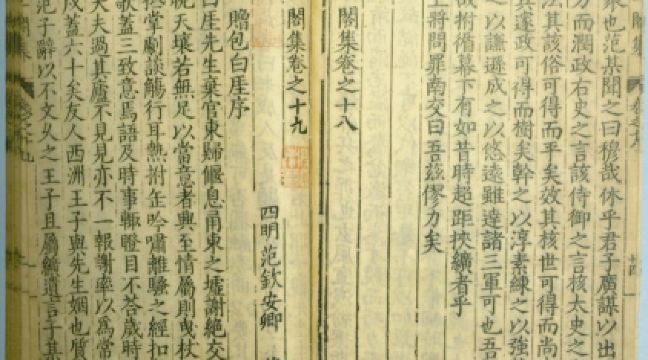 衆也范某聞之曰穆哉休乎君子廣謀以出
方而潤政右史之言該侍御之言核太史之
法其該俗可得而平矣效其核世可得而尚
其邃政可得而樹矣幹之以淳素練之以強
之以謙遜成之以悠遠雖達諸三軍可也吾
哉拊循幕下有如昔時超距挾纊者乎
上將問罪南交曰吾茲僇力矣
閣集卷之十八
閣集卷之十九
四明范欽安卿
贈包白厓序
白厓先生棄官東歸偃息甬東之墟謝絕交
睨天壤若無足以當意者興至情屬則曳杖
與掌劇談觴行耳熱拊缶吟嘯離騷之經扣
歌蓋三致意焉語及時事輒瞪目不答歲時
大夫過其廬不見見亦不一報謝率以為常
戊蓋六十矣友人西洲王子與先生姻也質
范子辭以不文乆之王子且屬纊遺言于其